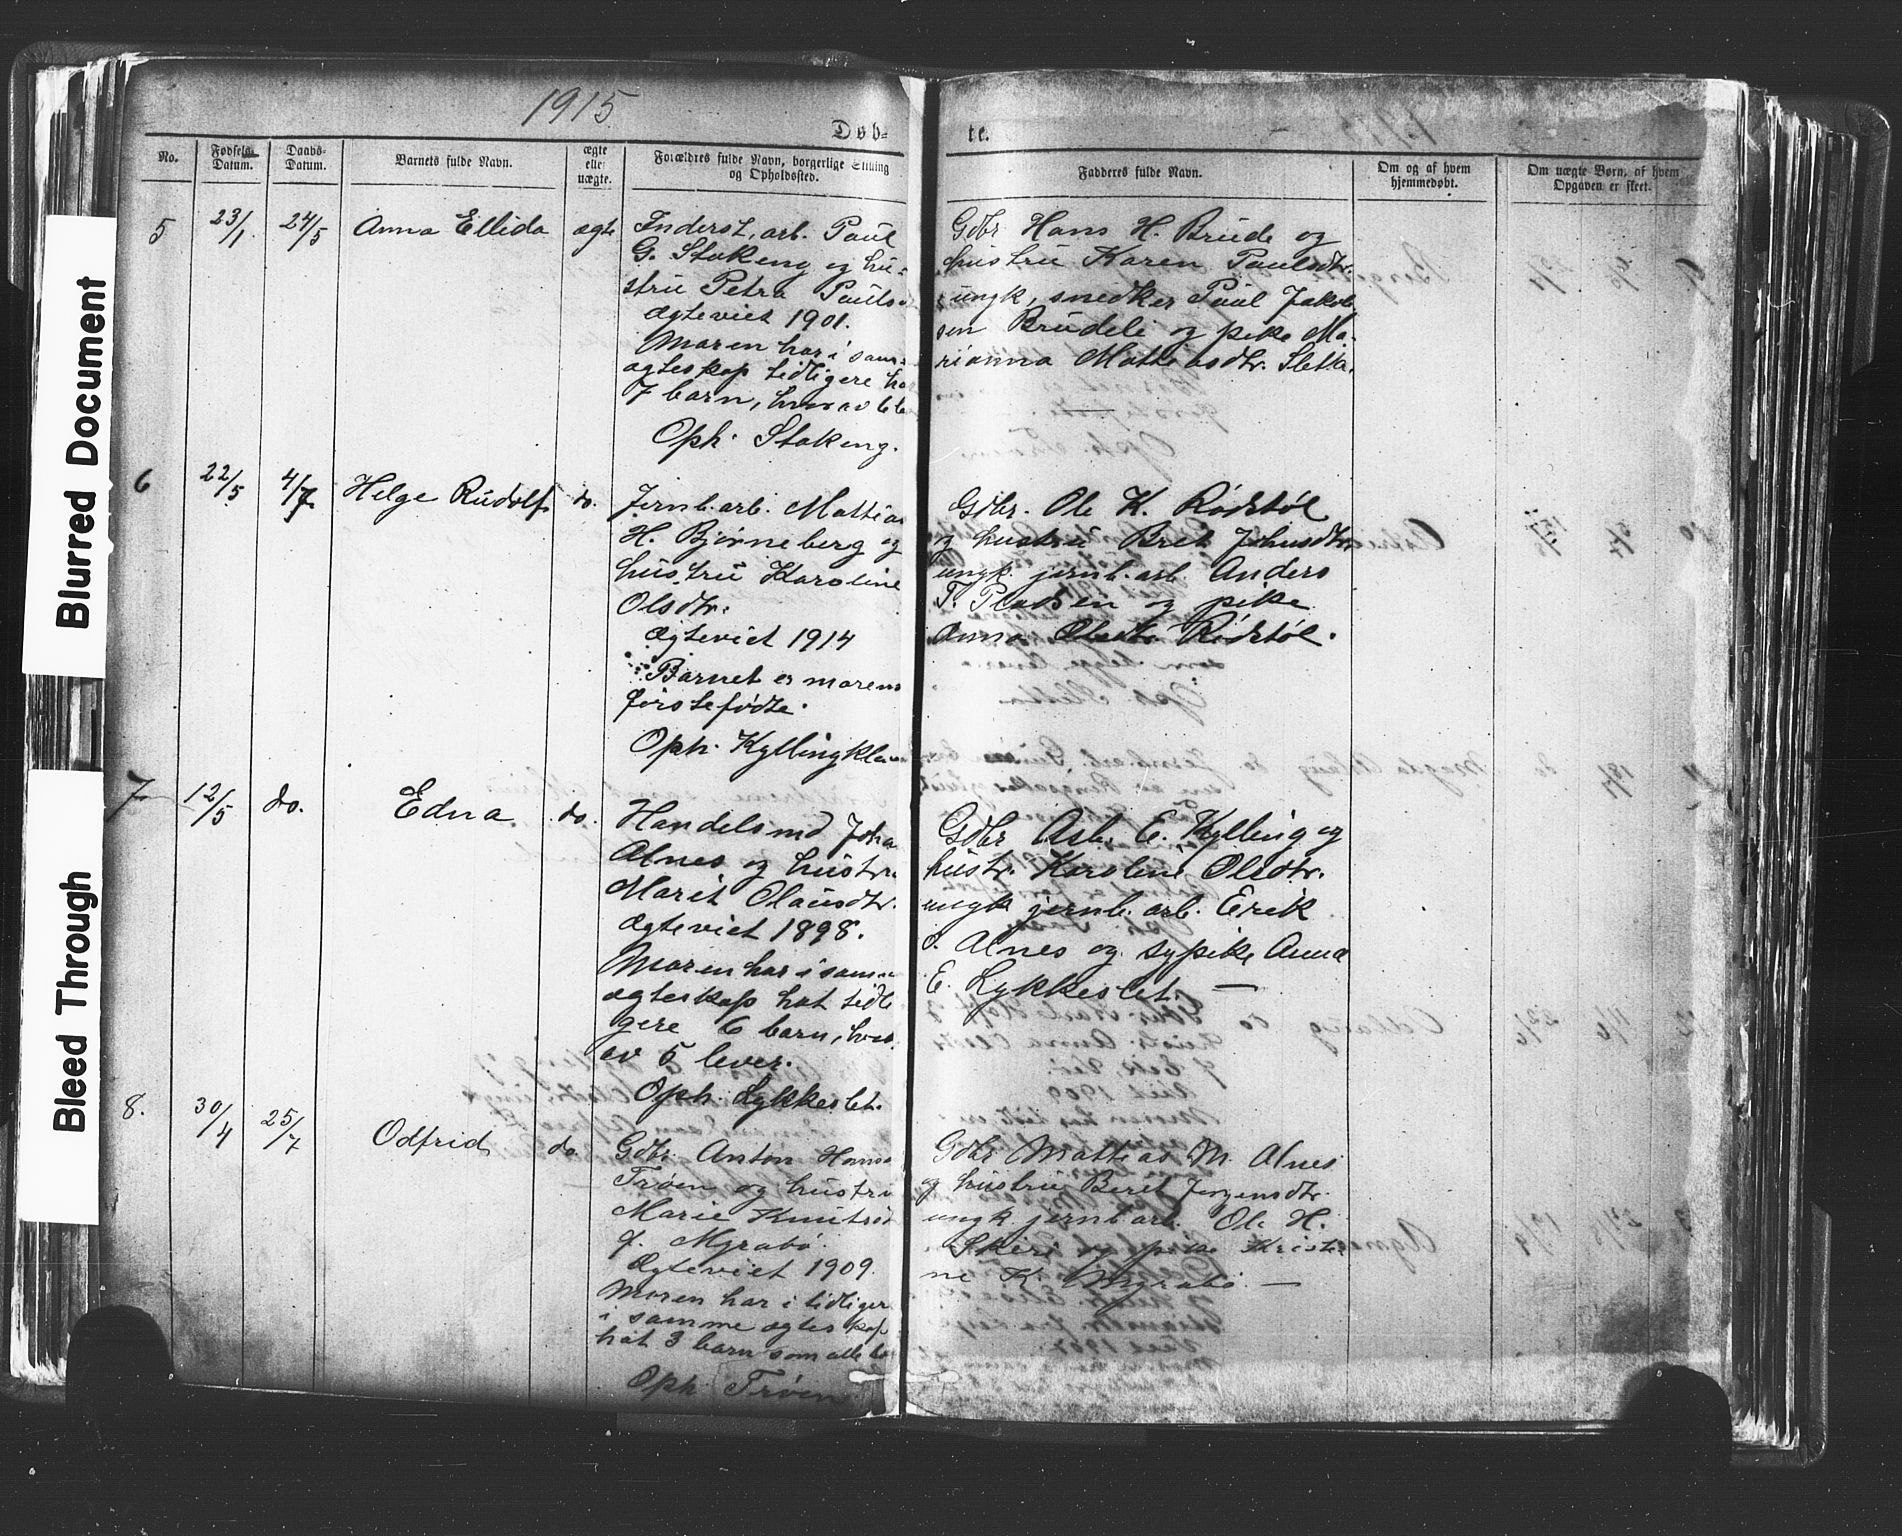 Blurred Document
Bleed Through
1915
Døb-
te.
No.
Fødsels-
Datum.
Daabs-
Datum.
Barnets fulde Navn.
ægte
eller
uægte.
Forældres fulde Navn, borgerlige Stilling
og Opholdssted.
Fadderes fulde Navn.
Om og af hvem
hjemmedøbt.
Om uægte Børn, af hvem
Opgaven er skeet.
5
23/1
24/5
Anna Ellida
ægte
Inderst, arb. Paul
G. Stokeng og hu-
stru Petra Pauls
ægteviet 1901.
Moren har i sam-
ægteskap tidligere
7 barn, hvorav 6
Oph. Stokeng.
Gdbr Hans H. Brude og
hustru Karen Paulsdtr.
ungk, snedker Paul Jakob
sen Brudeli og pike Ma-
rianna Mattiasdtr. Sletta.
6
22/5
4/7
Helge Rudolf
do.
Jernb.arb. Mattias
H. Bjørneberg og
hustru Karoline
Olsdtr.
ægteviet 1914
Barnet er morens
førstefødte.
Oph. Kylling
Gdbr. Ole K. Rødstøl
og hustru Bret Johnsdtr.
ungk. jernb.arb. Anders
T. Pladsen og pike
Anna Olsdtr. Rødstøl.
7
12/5
do.
Edna
do.
Handelsmd Joha
Alnes og hustru
Marit Olausdtr.
ægteviet 1898.
Moren har i sam-
ægteskap hat tidli
gere 6 barn, hvor
av 5 lever.
Oph. Lykkeslet.
Gdbr Asb. E. Kylling og
hustr. Karoline Olsdtr.
ungk jernb. arb. Erik
J. Alnes og sypike Anna
E. Lykkeslet. —
8.
30/4
25/7
Odfrid
do
Gdbr. Anton Hans
Trøen og hustru
Marie Knutsd
f. Myrabø.
Ægteviet 1909.
Moren har i tidliger
i samme ægteskap
hat 3 barn som alle
Oph Trøen
Gdbr Mattias M. Alnes
og hustru Beret Jørgensdtr.
ungk jernb arb. Ole H.
Skiri og pike Kristi
ne K. Myrabø. —